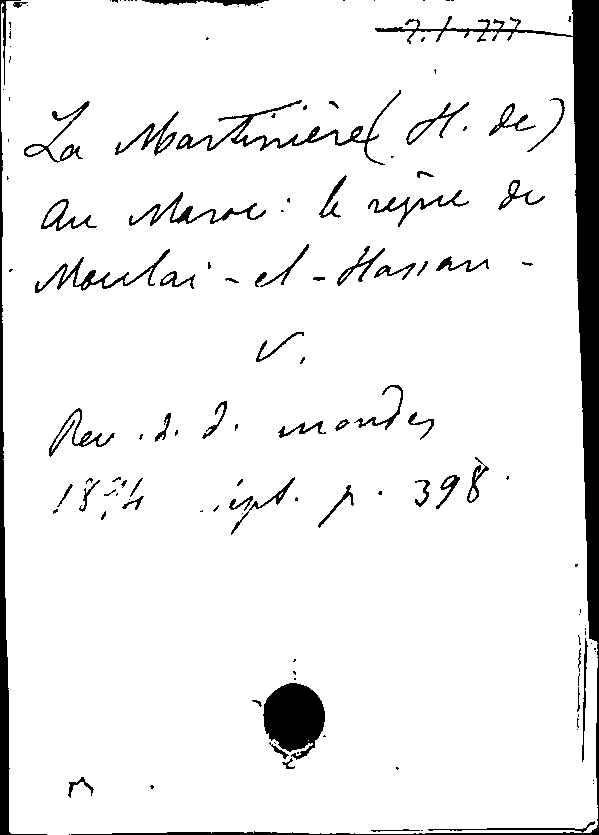 La Martinière (H. de)
Au Maroc : le règne de
Moulai - el - Hassan -
V.
Rev. d. d. mondes
1894 sept. p. 398.